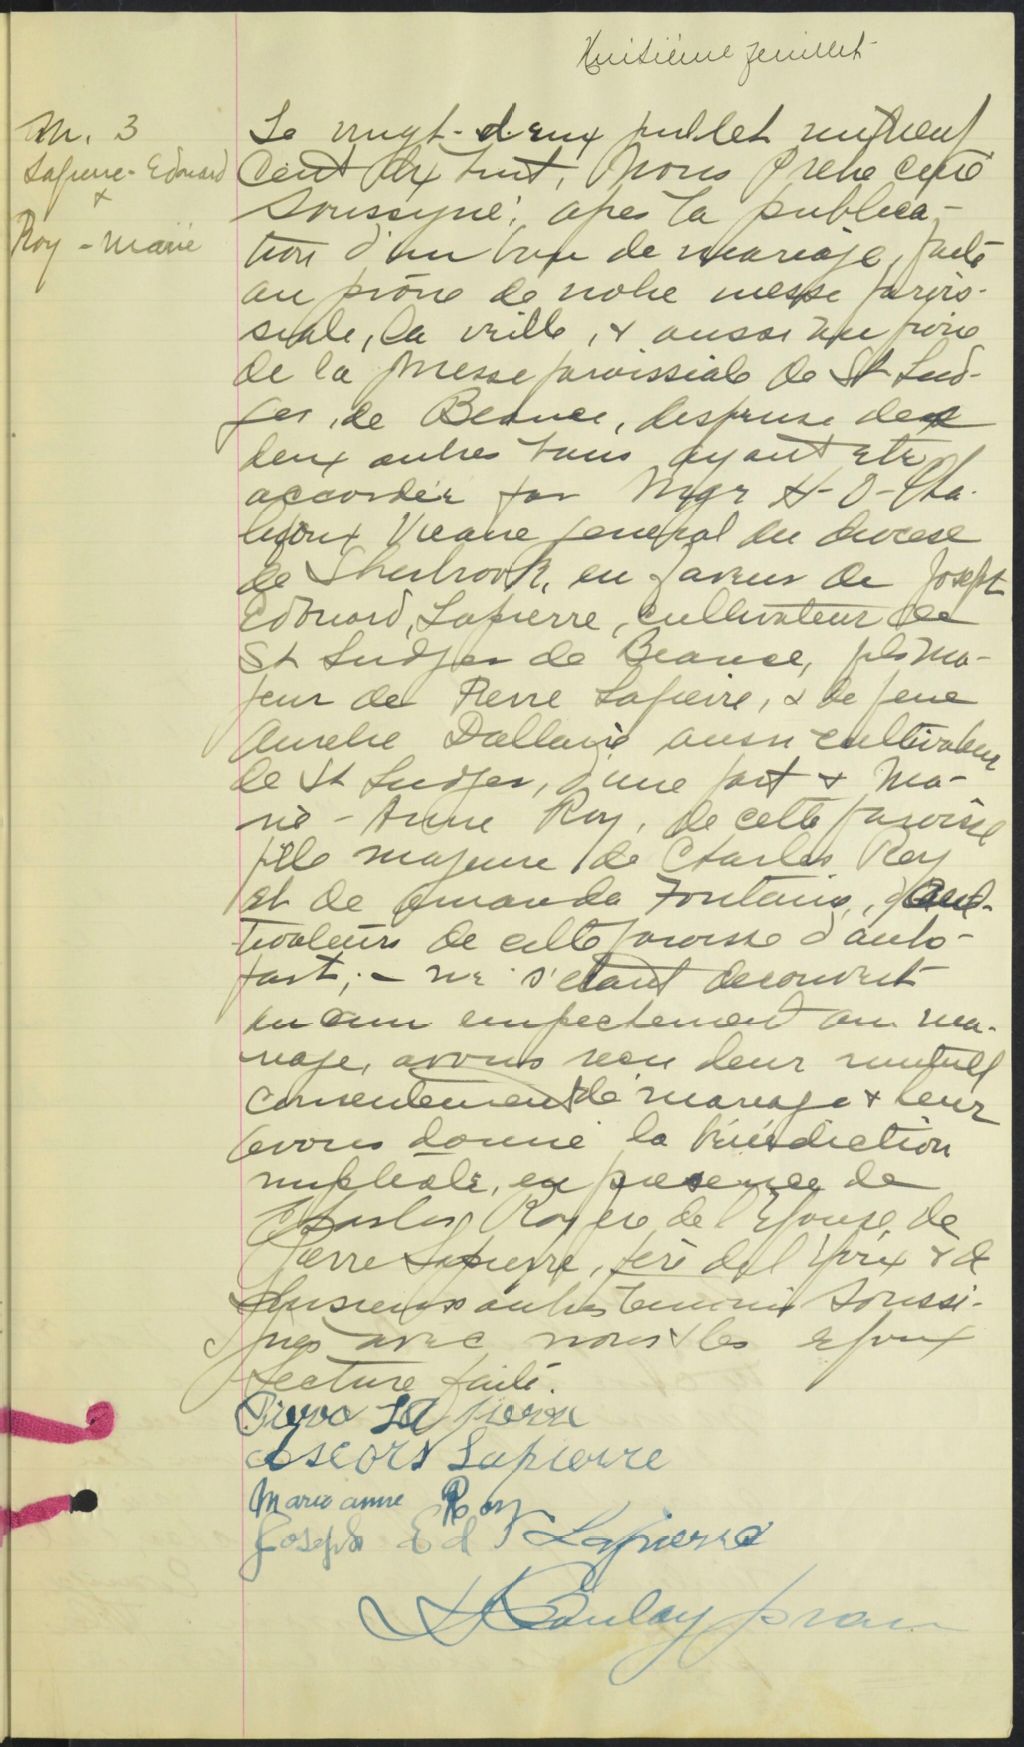 Huitième feuillet
M. 3
Lapierre - Edouard
+
Roy - Marie
Le vingt-deux juillet mil neuf
cent dix huit, Nous Prêtre curé
soussigné, après la publica-
tion d'un ban de mariage, faite
au prône de notre messe parois-
siale, la veille, & aussi au prône
de la messe paroissiale de St Lud-
ger, de Beauce, dispense des
deux autres bans ayant été
accordée par Mgr H-O-Cha-
lifoux Vicaire général du diocèse
de Sherbrook, en faveur de Joseph
Edouard, Lapierre, cultivateur de
St Ludger de Beauce, fils ma-
jeur de Pierre Lapierre, & de feue
Aurelie Dallaire aussi cultivateur
de St Ludger, d'une part & Ma-
rie - Anne Roy, de cette paroisse
fille majeure de Charles Roy
et de Amanda Fontaine,
de cette paroisse d'autre
part; - ne s'étant découvert
aucun empêchement au ma-
riage, avons reçu leur mutuel
consentement de mariage & leur
avons donné la bénédiction
nuptiale, en présence de
Charles Roy père de l'Epouse, de
Pierre Lapierre, père de l'Epoux & de
plusieurs autres témoins soussi-
gnés avec nous & les epoux
Lecture faite.
Pierre Lapierre
Lapierre
Marie anne Roy
Joseph Ed Lapierre
Boulay ptre